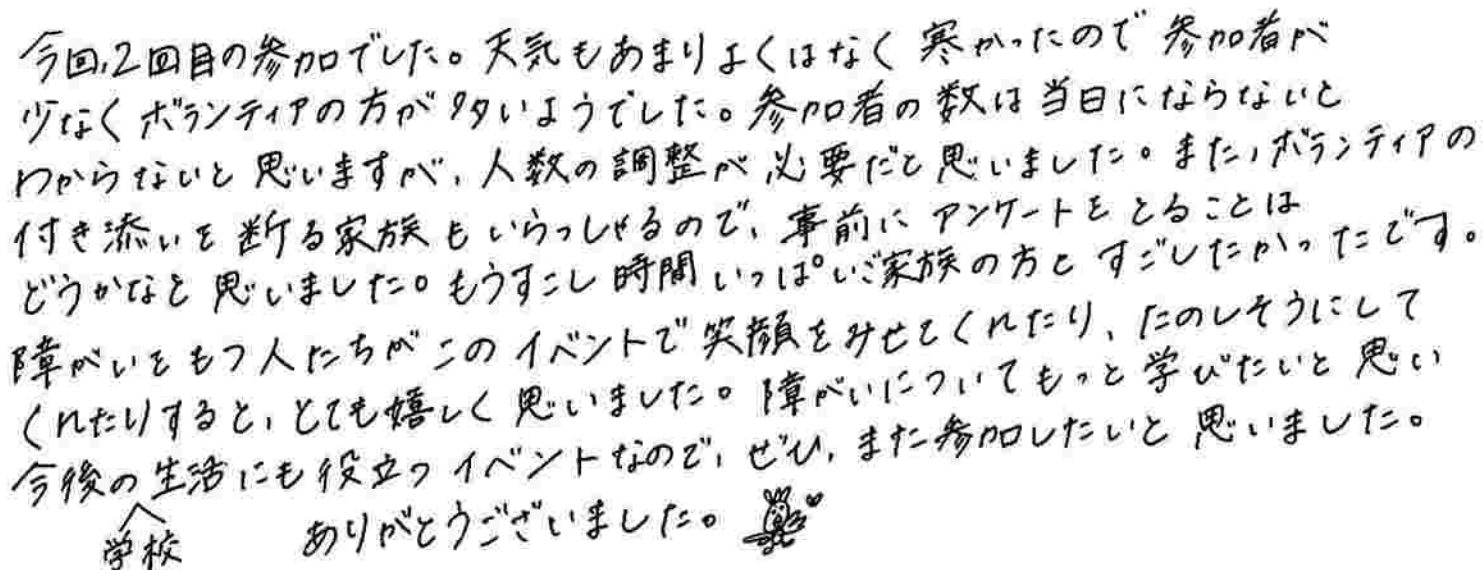 今回、2回目の参加でした。天気もあまりよくはなく寒かったので参加者が
少なくボランティアの方が多いようでした。参加者の数は当日にならないと
わからないと思いますが、人数の調整が必要だと思いました。また、ボランティアの
付き添いを断る家族もいらっしゃるので、事前にアンケートをとることは
どうかなと思いました。もうすこし時間いっぱいご家族の方とすごしたかったです。
障がいをもつ人たちがこのイベントで笑顔をみせてくれたり、たのしそうにして
くれたりすると、とても嬉しく思いました。障がいについてもっと学びたいと思い
今後の学校生活にも役立つイベントなので、ぜひ、また参加したいと思いました。
ありがとうございました。